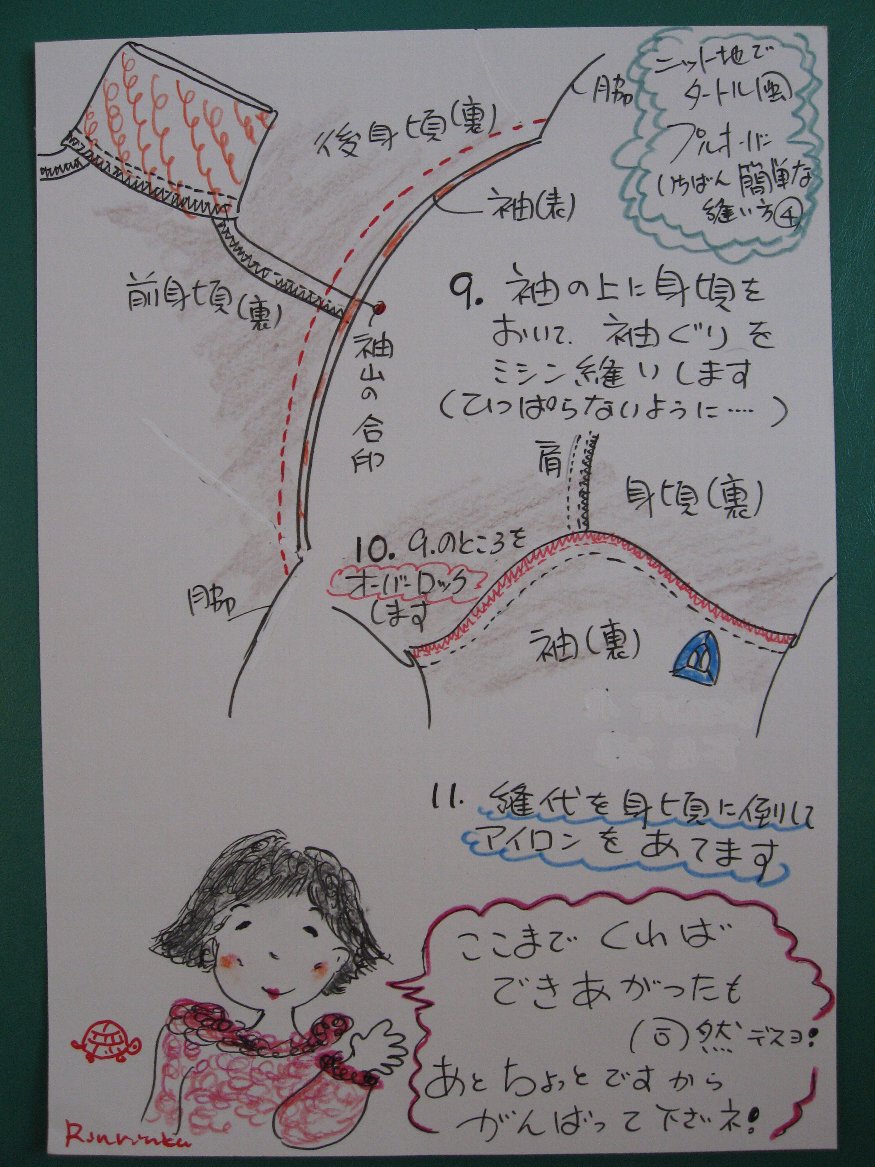 ニット地で
タートル(風)
プルオーバー
いちばん簡単な
縫い方④
脇
後身頃(裏)
袖(表)
前身頃(裏)
袖山の合印
9. 袖の上に身頃を
おいて、袖ぐりを
ミシン縫いします
(ひっぱらないように‥‥)
肩
身頃(裏)
10. 9.のところを
オーバーロック
します
脇
袖(裏)
11. 縫代を身頃に倒して
アイロンをあてます
ここまでくれば
できあがったも
同然デスヨ!
あとちょっとですから
がんばって下さいネ!